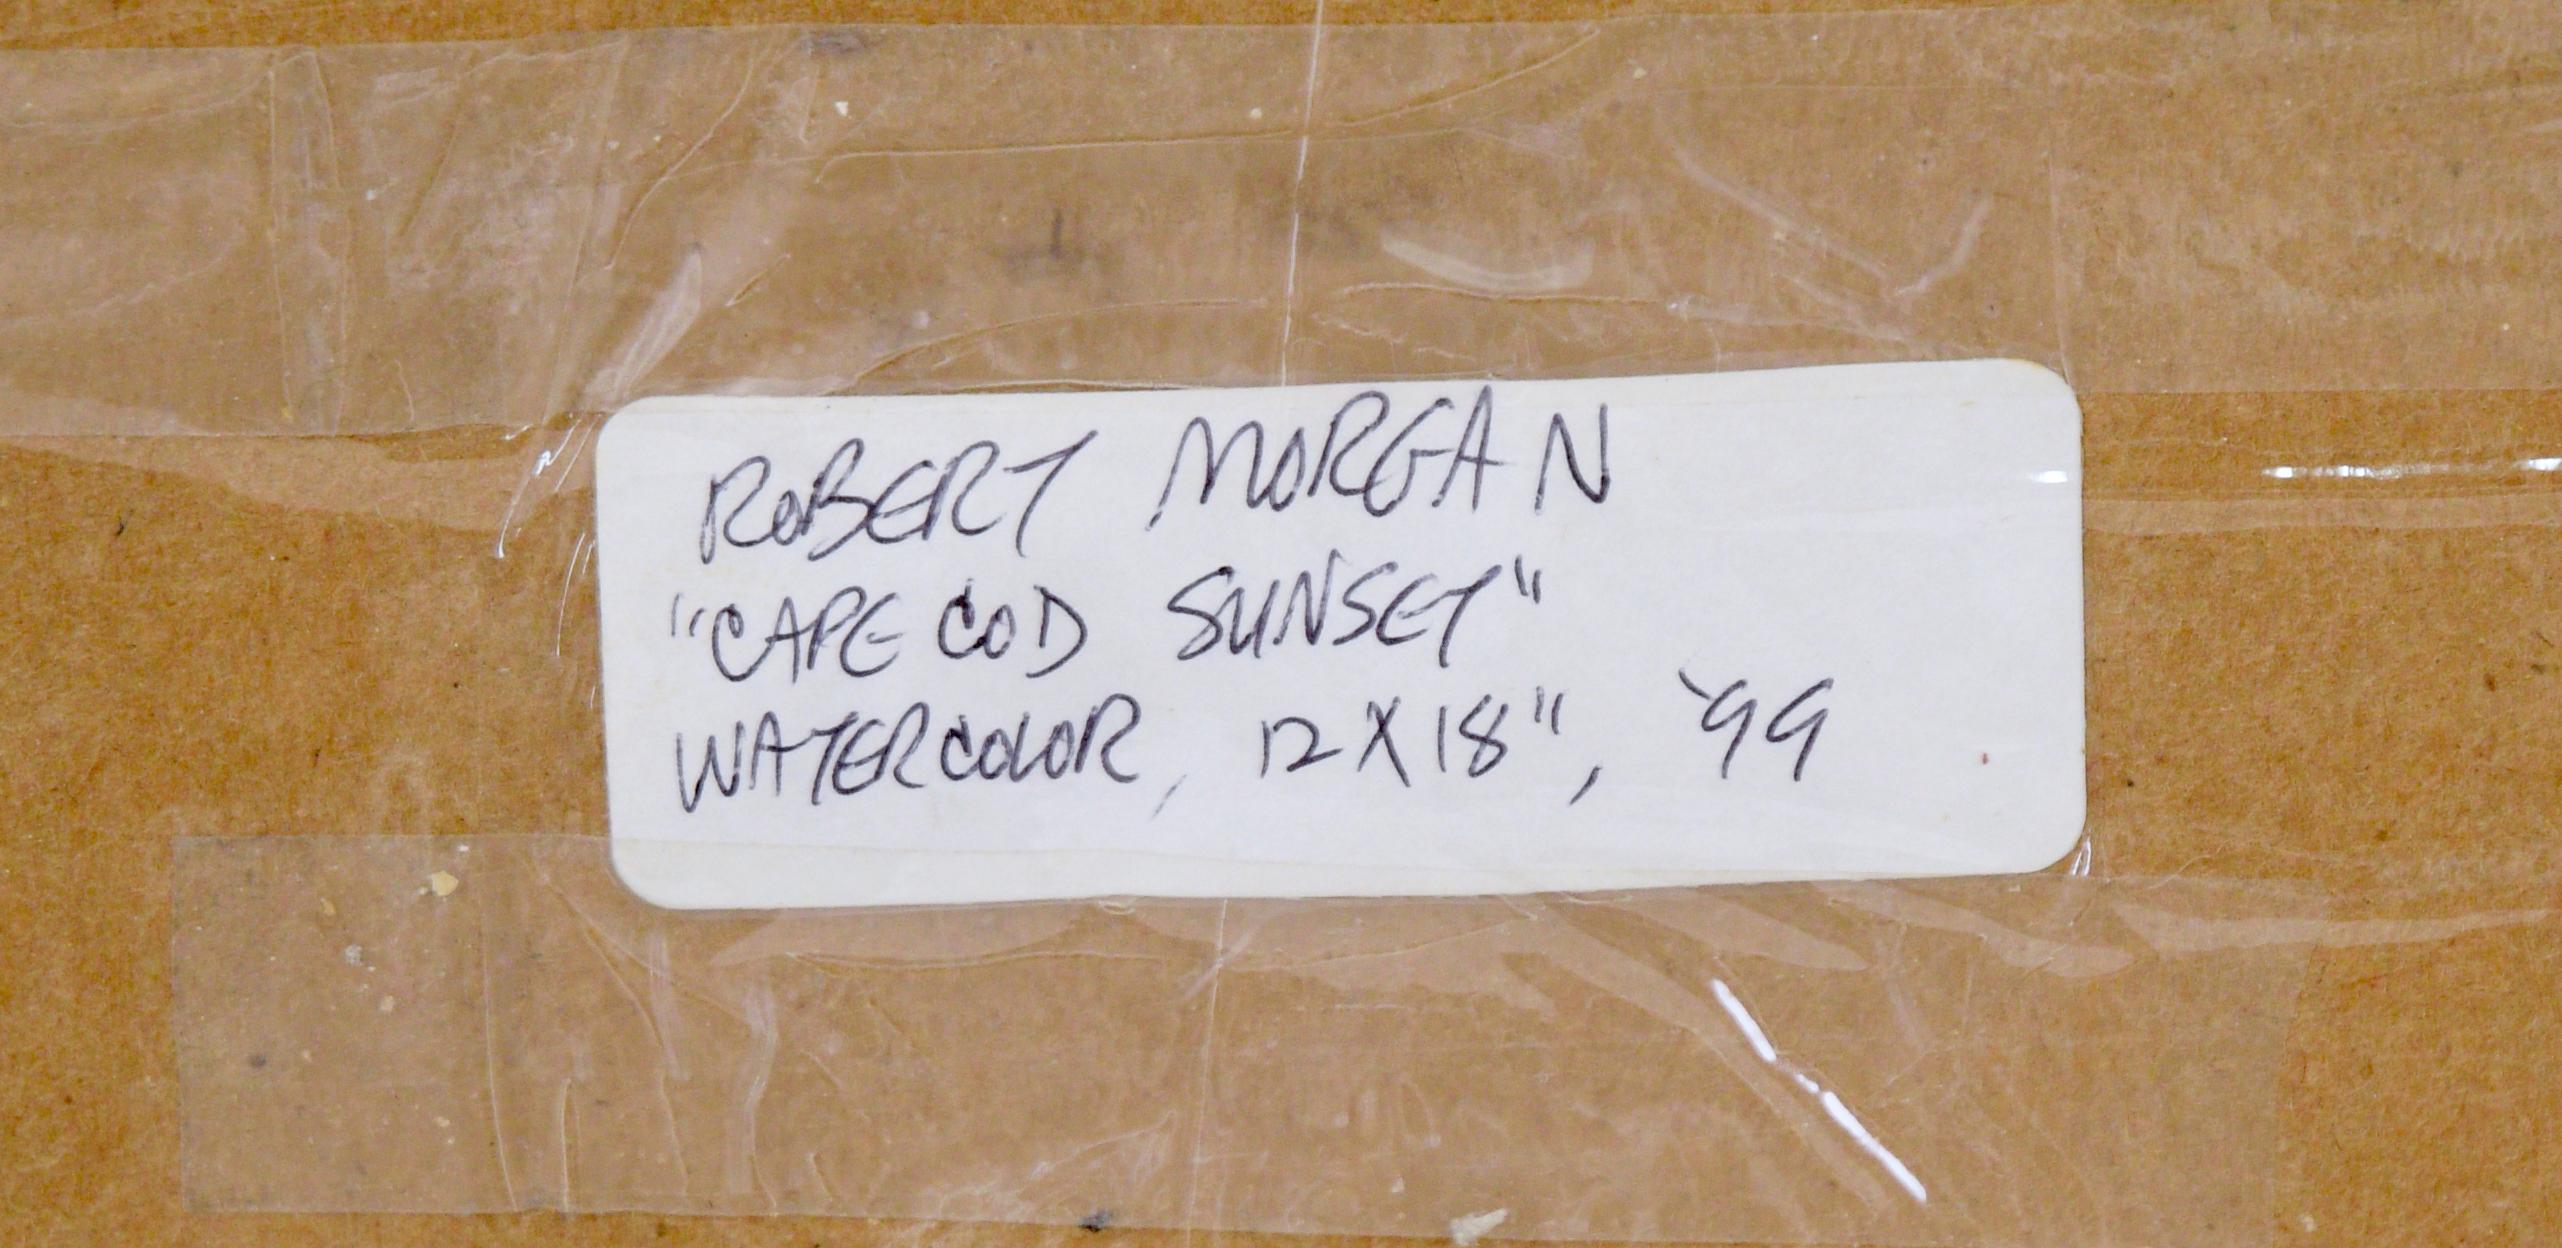 ROBERT MORGAN
"CAPE COD SUNSET"
WATERCOLOR, 12 X 18", '99